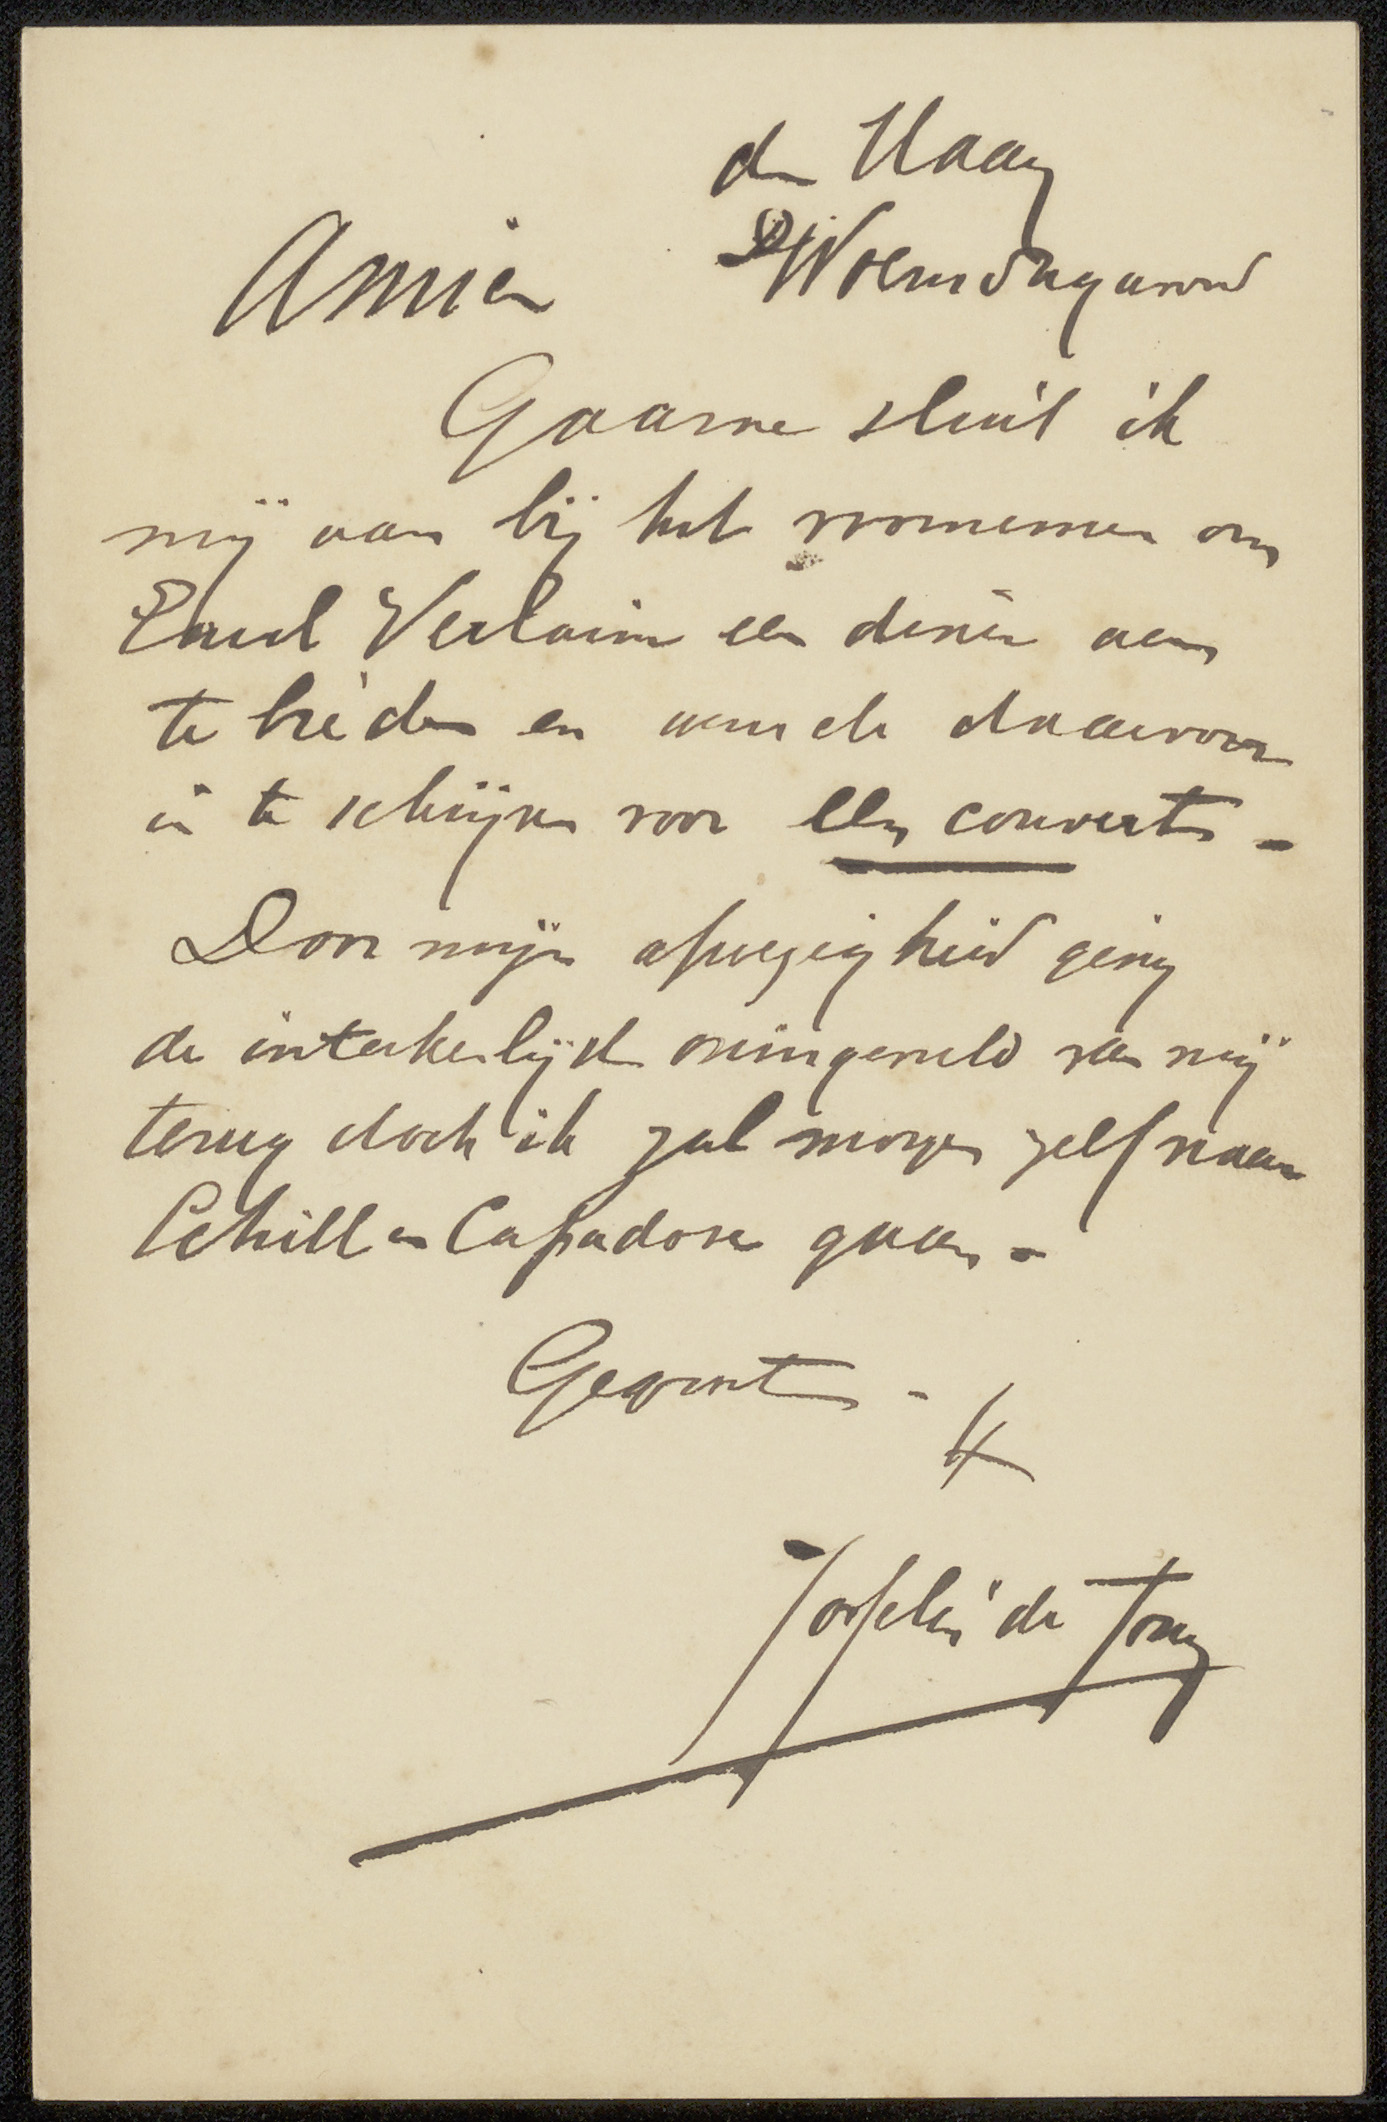 den Haag
Woensdagavond
Amice
Gaarne sluit ik
mij aan bij het voornemen om
Paul Verlaine een diner aan
te bieden en wensch daarvoor
in te schrijven voor een couverts -
Door mijn afwezigheid ging
de inteekenlijst oningevuld van mij
terug doch ik zal morgen zelf naar
Schill en Capadose gaan -
Gegroet -
de Jong